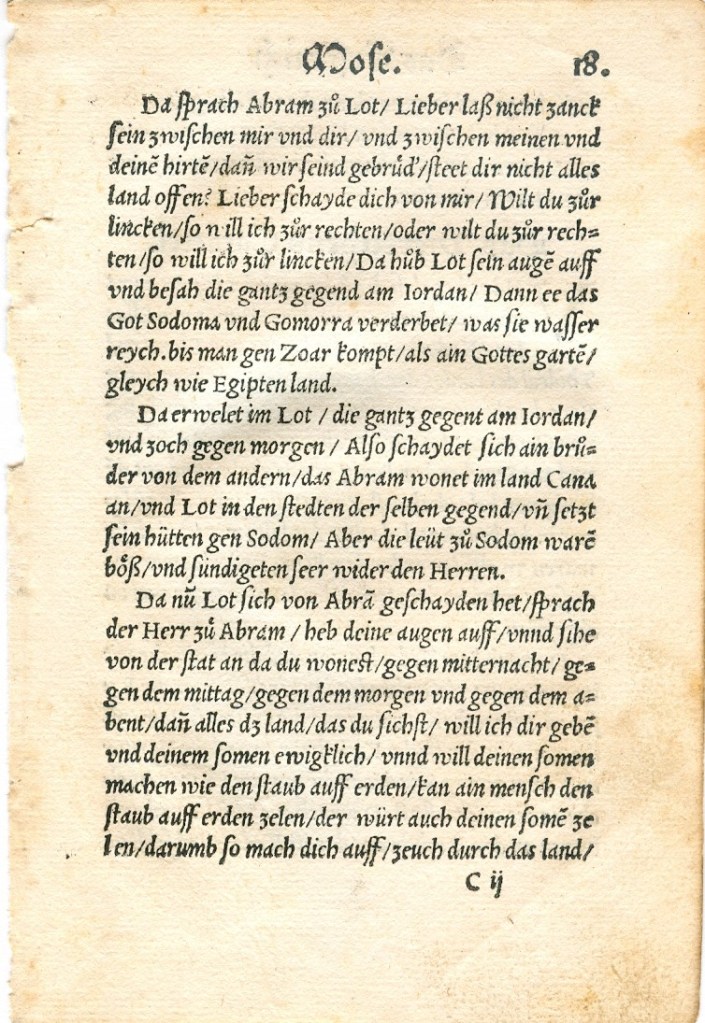 Mose. 18.
Da sprach Abram zů Lot/ Lieber laß nicht zanck
sein zwischen mir vnd dir/ vnd zwischen meinen vnd
deinē hirtē/dañ wir seind gebrůd'/steet dir nicht alles
land offen? Lieber schayde dich von mir/ Wilt du zůr
lincken/so will ich zůr rechten/oder wilt du zůr rech=
ten/so will ich zůr lincken/Da hůb Lot sein augē auff
vnd besah die gantz gegend am Iordan/ Dann ee das
Got Sodoma vnd Gomorra verderbet/ was sie wasser
reych.bis man gen Zoar kompt/als ain Gottes gartē/
gleych wie Egipten land.
Da erwelet im Lot / die gantz gegent am Iordan/
vnd zoch gegen morgen / Also schaydet sich ain brů=
der von dem andern/das Abram wonet im land Cana
an/vnd Lot in den stedten der selben gegend/vñ setzt
sein hütten gen Sodom/ Aber die leüt zů Sodom warē
bößß/vnd sündigeten seer wider den Herren.
Da nū Lot sich von Abrā geschayden het/sprach
der Herr zů Abram / heb deine augen auff/vnnd sihe
von der stat an da du wonest/gegen mitternacht/ ge=
gen dem mittag/gegen dem morgen vnd gegen dem a=
bent/dañ alles dz land/das du sichst/ will ich dir gebē
vnd deinem somen ewigklich/ vnnd will deinen somen
machen wie den staub auff erden/kan ain mensch den
staub auff erden zelen/der würt auch deinen somē ze
len/darumb so mach dich auff/zeuch durch das land/
C ij